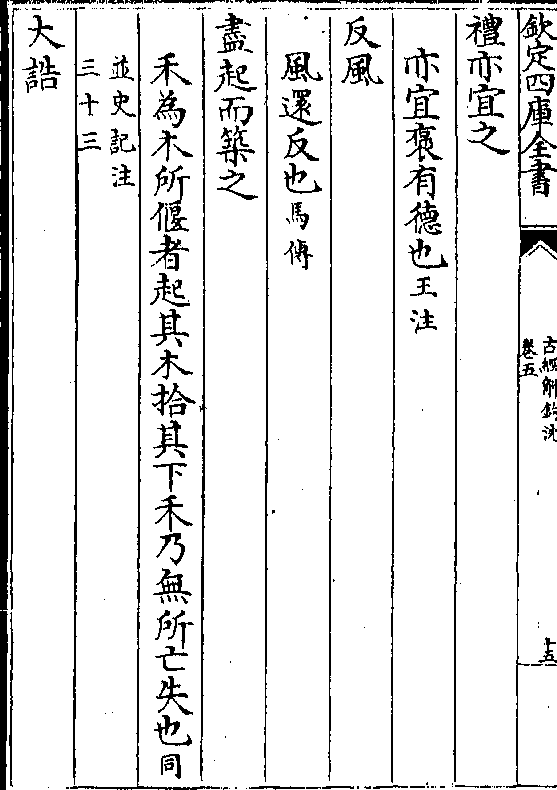 欽定四庫全書
古經解鉤沈
卷五
十五
禮亦宜之
亦宜褒有德也王注
反風
風還反也馬傳
盡起而築之
禾為木所偃者起其木拾其下禾乃無所亡失也同
並史記注
三十三
大誥